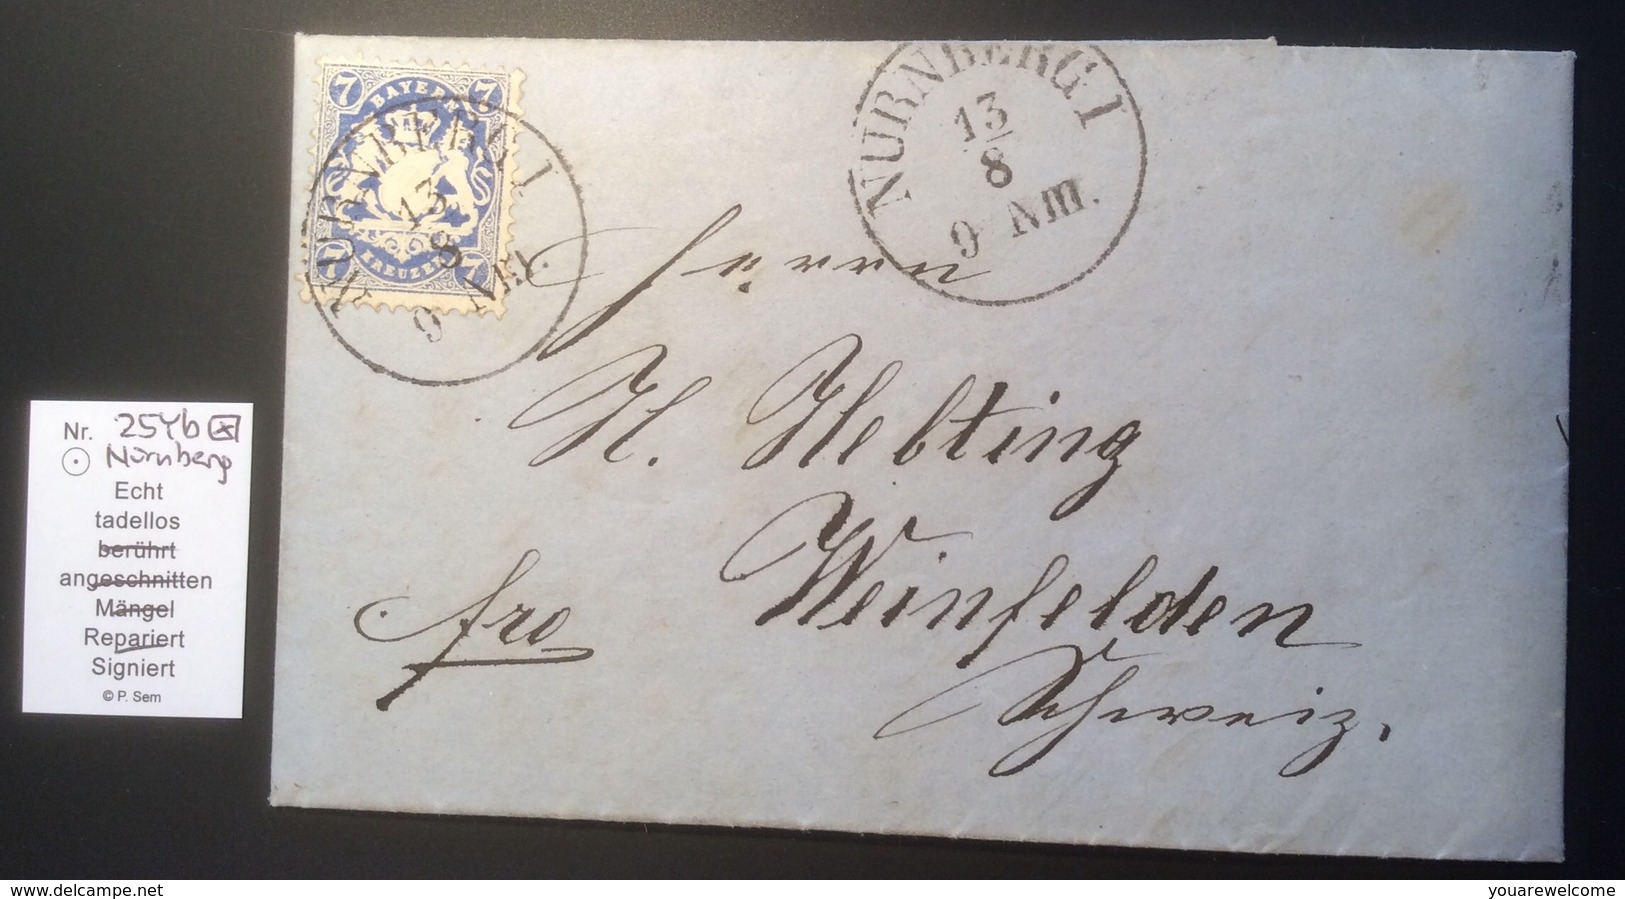 7 7
BAYERN
KREUZER
7 7
NÜRNBERG I
13
8
9 AM.
NÜRNBERG I
13
8
9 AM.
Herrn
H. Helting
Weinfelden
fro
Schweiz.
Nr. 25Yb
Nürnberg
Echt
tadellos
berührt
angeschnitten
Mängel
Repariert
Signiert
© P. Sem
www.delcampe.net
youarewelcome